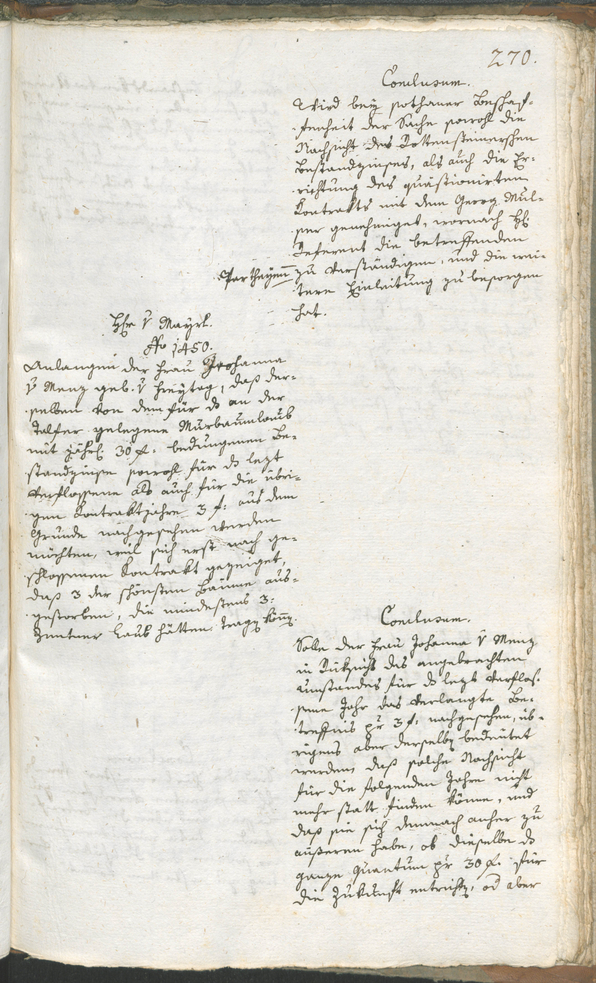 270.
Conclusum.
Wird bey sothaner Beschaf-
fenheit der Sache sowohl die
Nachsicht des Rottensteinerschen
Bestandzinses, als auch die Er-
richtung des quästionirten
Kontrakts mit dem Georg Mul-
ser genehmiget, wornach H:
Referent die betreffenden
Partheyen zu verständigen, und die wei-
tere Einleitung zu besorgen
hat.
Hr v Mayrl.
No 1450.
Anlangen der Frau Johanna
v Menz geb. v Freytag, daß der-
selben von dem für das an der
Talfer gelegene Murbaumlaub
mit jährl. 30 f. bedungenen Be-
standzinse sowohl für das lezt
verflossene als auch für die übri-
gen Kontraktjahre 3 f: aus dem
Grunde nachgesehen werden
möchten, weil sich erst nach ge-
schlossenem Kontrakt gezeiget,
daß 3 der schönsten Bäume aus-
gestorben, die mindestens 3:
Zentner Laub hätten tragen könn.
Conclusum.
Solle der Frau Johanna v Menz
in Rüksicht des angebrachten
Umstandes für das lezt verflos-
sene Jahr das verlangte Be-
treffnis pr 3 f: nachgesehen, üb-
rigens aber derselben bedeutet
werden, daß solche Nachsicht
für die folgenden Jahre nicht
mehr statt finden könne, und
daß sie sich demnach anher zu
äußeren habe, ob dieselbe das
ganze Quantum pr 30 f. für
die Zukunft entrichten, od aber